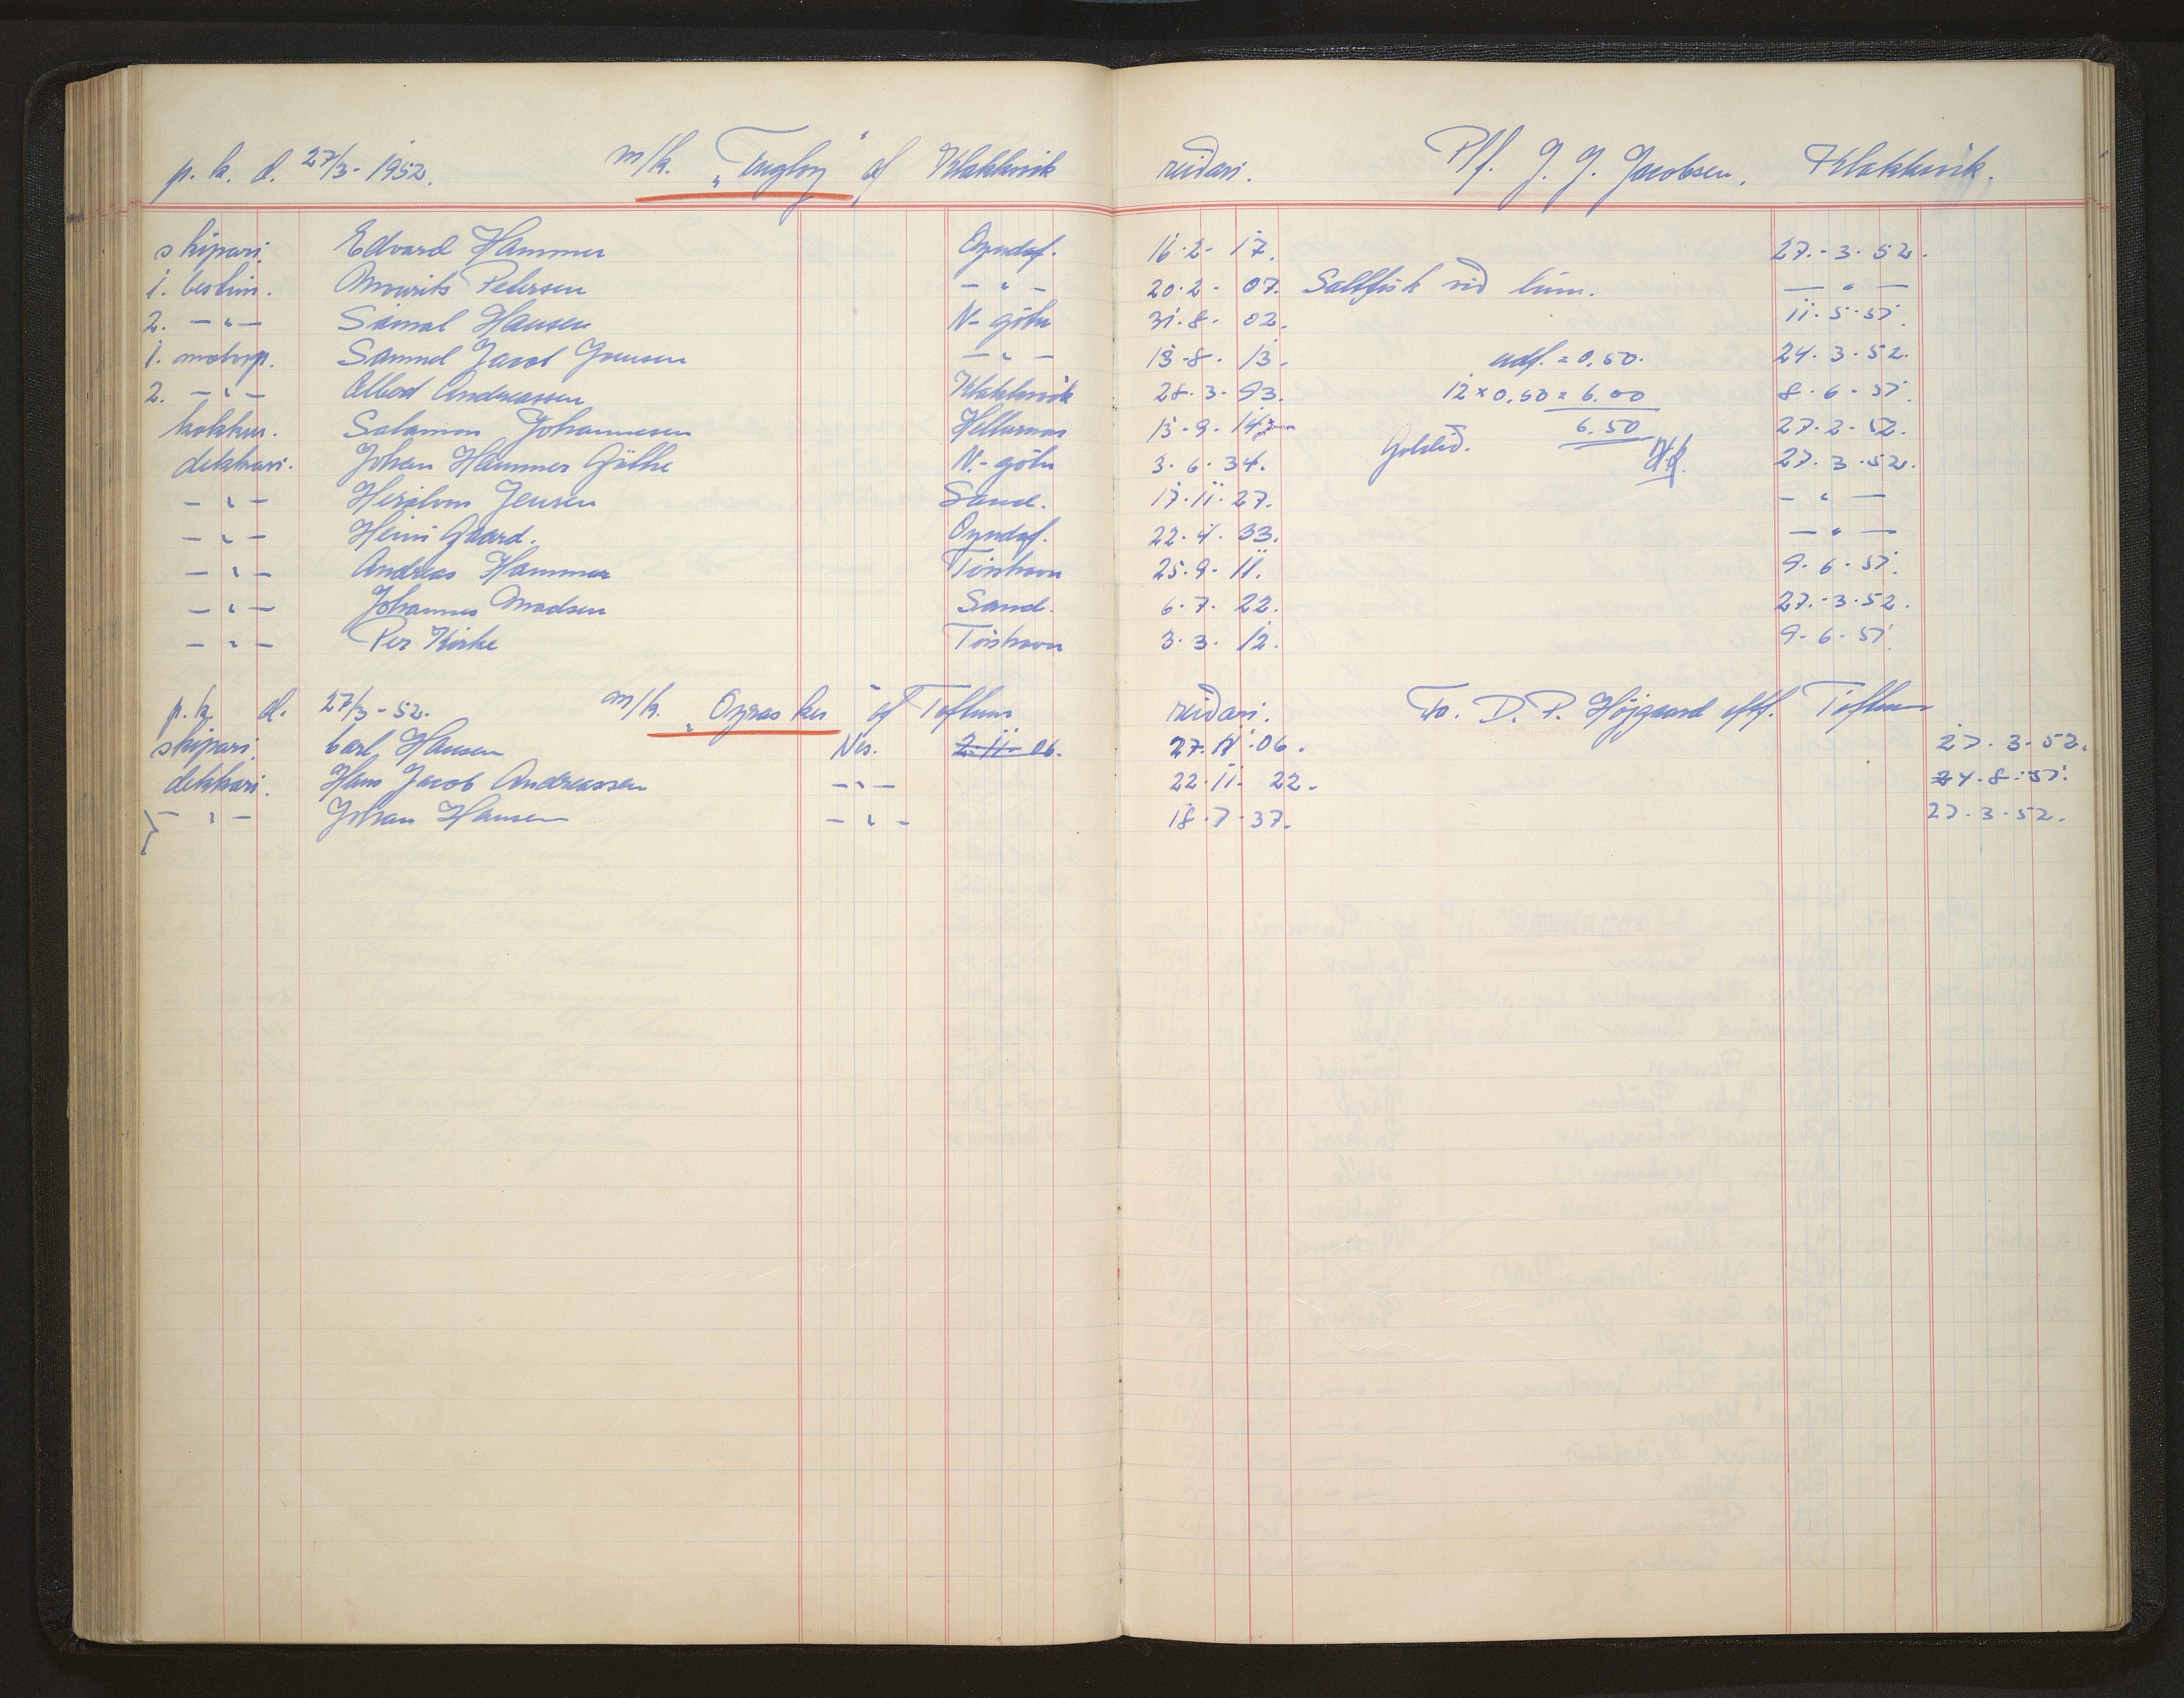 p. k. d. 27/3-1952. m/k. „Fugloy" af Klakksvik reiðari. P/f. J. J. Jacobsen. Klakksvik.
skipari. Edvard Hammer Oyndaf. 16-2- 17. 27.-3-52.
1. bestim. Mourits Petersen — " — 20-2- 07. Saltfisk við línu. — " —
2. — " — Samal Hansen N- gøtu 31-8- 02. 11-5-51.
1. motorp. Samuel Jacob Joensen — " — 13-8- 13. udf. = 0.50. 24.3.52.
2. — " — Albert Andreassen Klakksvik 28-3-93. 12 x 0,50 = 6.00 8-6-51.
kokkur. Salamon Johannesen Hellurnar 13-9-14. 6.50 27.2-52.
dekkari. Johan Hammer Gøthe N.- gøtu 3.6.34. Goldið. 27.3.52.
— " — Jensen Sand. 17.11.27. — " —
— " — Heini Gaard. Oyndaf. 22.4.33. — " —
— " — Andreas Hammer Tórshavn 25.9-11. 9-6-51.
— " — Johannes Madsen Sand. 6.7. 22. 27.-3.52.
— " — Per Kirke Tórshavn 3.3. 12. 9-6-51.
p.k. d. 27/3-52. m/k. „Oyrasker" af Toftum reiðari. Fa. D. P. Højgaard eftf. Toftum
skipari. Carl Hansen Nes. 2-11-06. 27.11.06. 27.3-52.
dekkari. Hans Jacob Andreassen — " — 22.11. 22. 24.8-51.
— " — Johan Hansen — " — 18.7.37. 27.3.52.